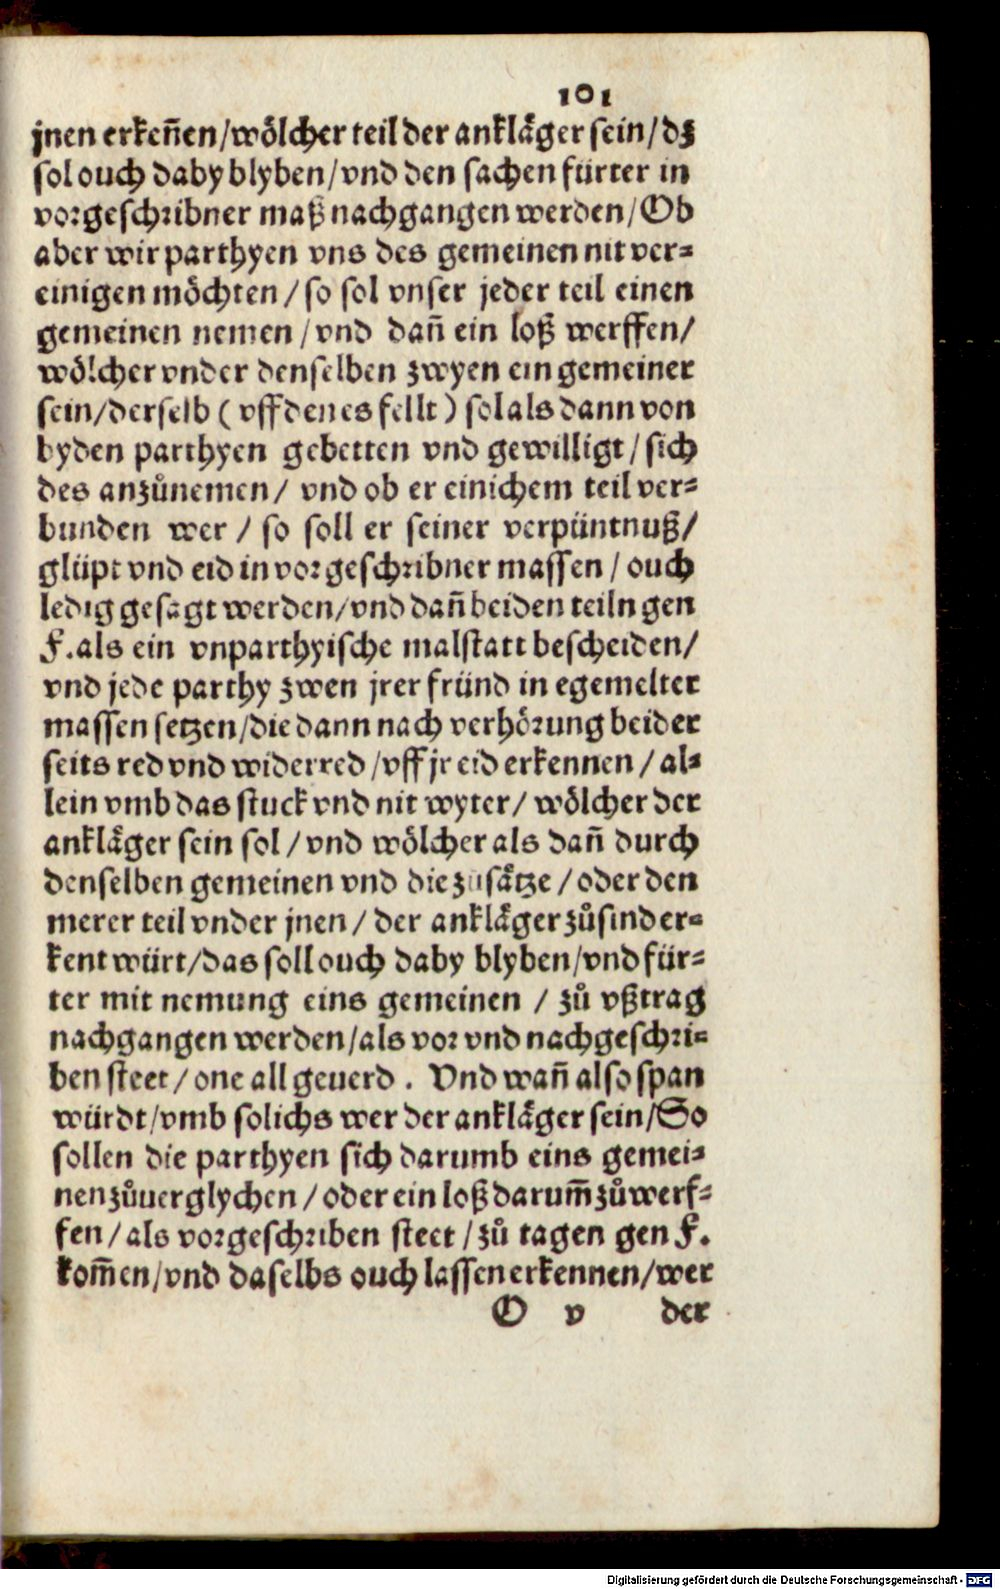 101
jnen erkeñen/wölcher teil der ankläger sein/dz
sol ouch daby blyben/vnd den sachen fürter in
vorgeschribner maß nachgangen werden/Ob
aber wir parthyen vns des gemeinen nit ver⸗
einigen möchten/so sol vnser jeder teil einen
gemeinen nemen/vnd dañ ein loß werffen/
wölcher vnder denselben zwyen ein gemeiner
sein/derselb (vff den es fellt) sol als dann von
byden parthyen gebetten vnd gewilligt/sich
des anzůnemen/ vnd ob er einichem teil ver⸗
bunden wer/so soll er seiner verpüntnuß/
glüpt vnd eid in vorgeschribner massen/ouch
ledig gesagt werden/vnd dañ beiden teiln gen
F. als ein vnparthyische malstatt bescheiden/
vnd jede parthy zwen jrer fründ in egemelter
massen setzen/die dann nach verhörung beider
seits red vnd widerred/vff jr eid erkennen/al⸗
lein vmb das stuck vnd nit wyter/wölcher der
ankläger sein sol/vnd wölcher als dañ durch
denselben gemeinen vnd die zusätze/oder den
merer teil vnder jnen/der ankläger zůsind er⸗
kent würt/das soll ouch daby blyben/vnd für⸗
ter mit nemung eins gemeinen/zů vßtrag
nachgangen werden/als vor vnd nachgeschri⸗
ben steet/one all geuerd. Vnd wañ also span
würdt/vmb solichs wer der ankläger sein/So
sollen die parthyen sich darumb eins gemei⸗
nen zůuerglychen/oder ein loß darum̃ zůwerf⸗
fen/als vorgeschriben steet/zů tagen gen F.
kom̃en/vnd daselbs ouch lassen erkennen/wer
O v der
Digitalisierung gefördert durch die Deutsche Forschungsgemeinschaft - DFG